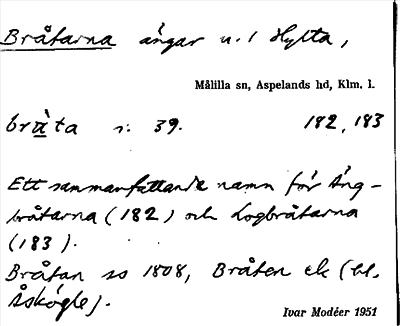 Bråtarna ängar u. / Hytta,
Målilla sn, Aspelands hd, Klm. l.
bråta s. 39. 182, 183
Ett sammanfattande namn för Äng-
bråtarna (182) och Logbråtarna
(183).
Bråtan so 1808, Bråten ek (bl.
Åskögle).
Ivar Modéer 1951